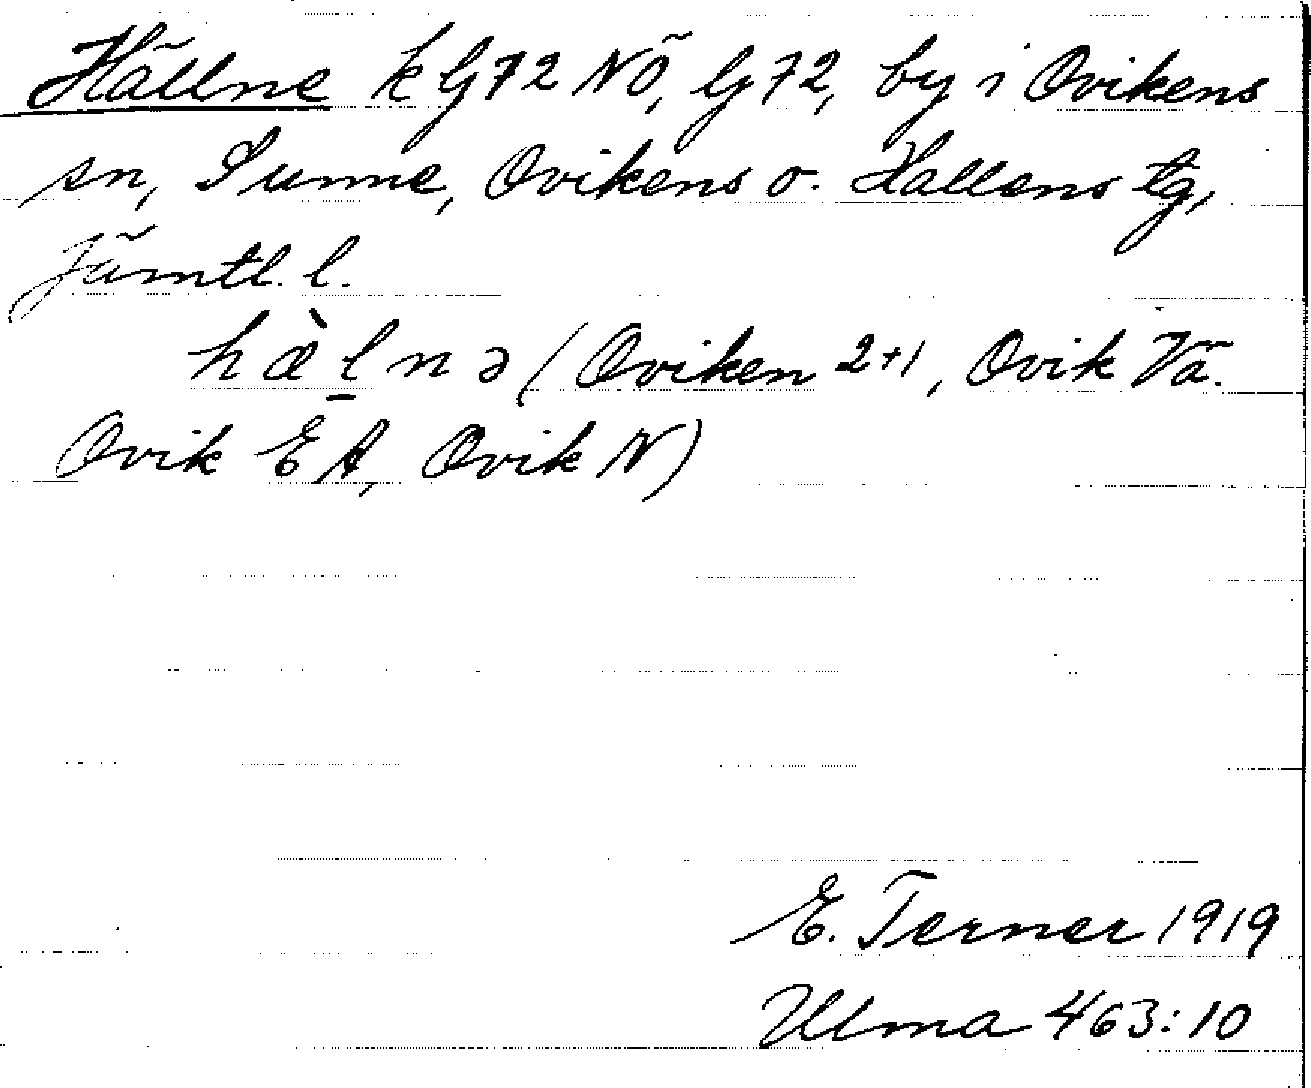 Hällne k G72 NÖ, G72, by i Ovikens
sn, Sunne, Ovikens o. Hallens tg,
Jämtl. l.
hæ̀l̠nə (Oviken 2+1, Ovik Vä.
Ovik EA, Ovik N)
E. Terner 1919
Ulma 463:10